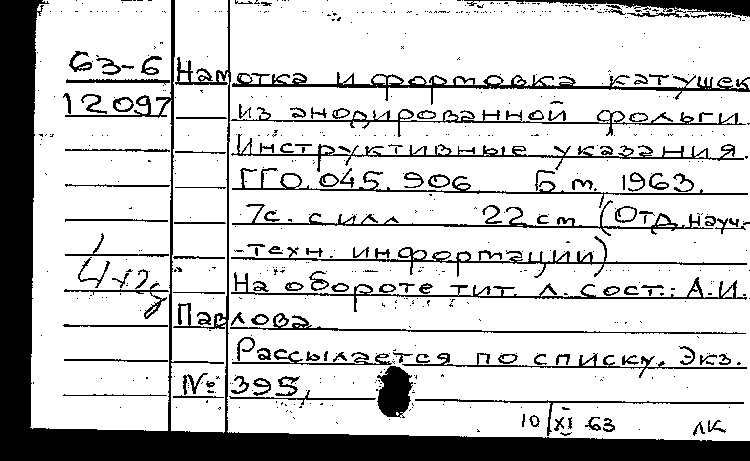 63-6 Намотка и формовка катушек
12097 из анодированной фольги
Инструктивные указания.
ГГО.045.906 Б.м. 1963.
7с. с илл 22 cm (Отд. науч.-
-техн. информации)
На обороте тит. л. сост.: А.И.
Павлова.
Рассылается по списку. Экз.
№ 395,
10/XI 63 ЛК